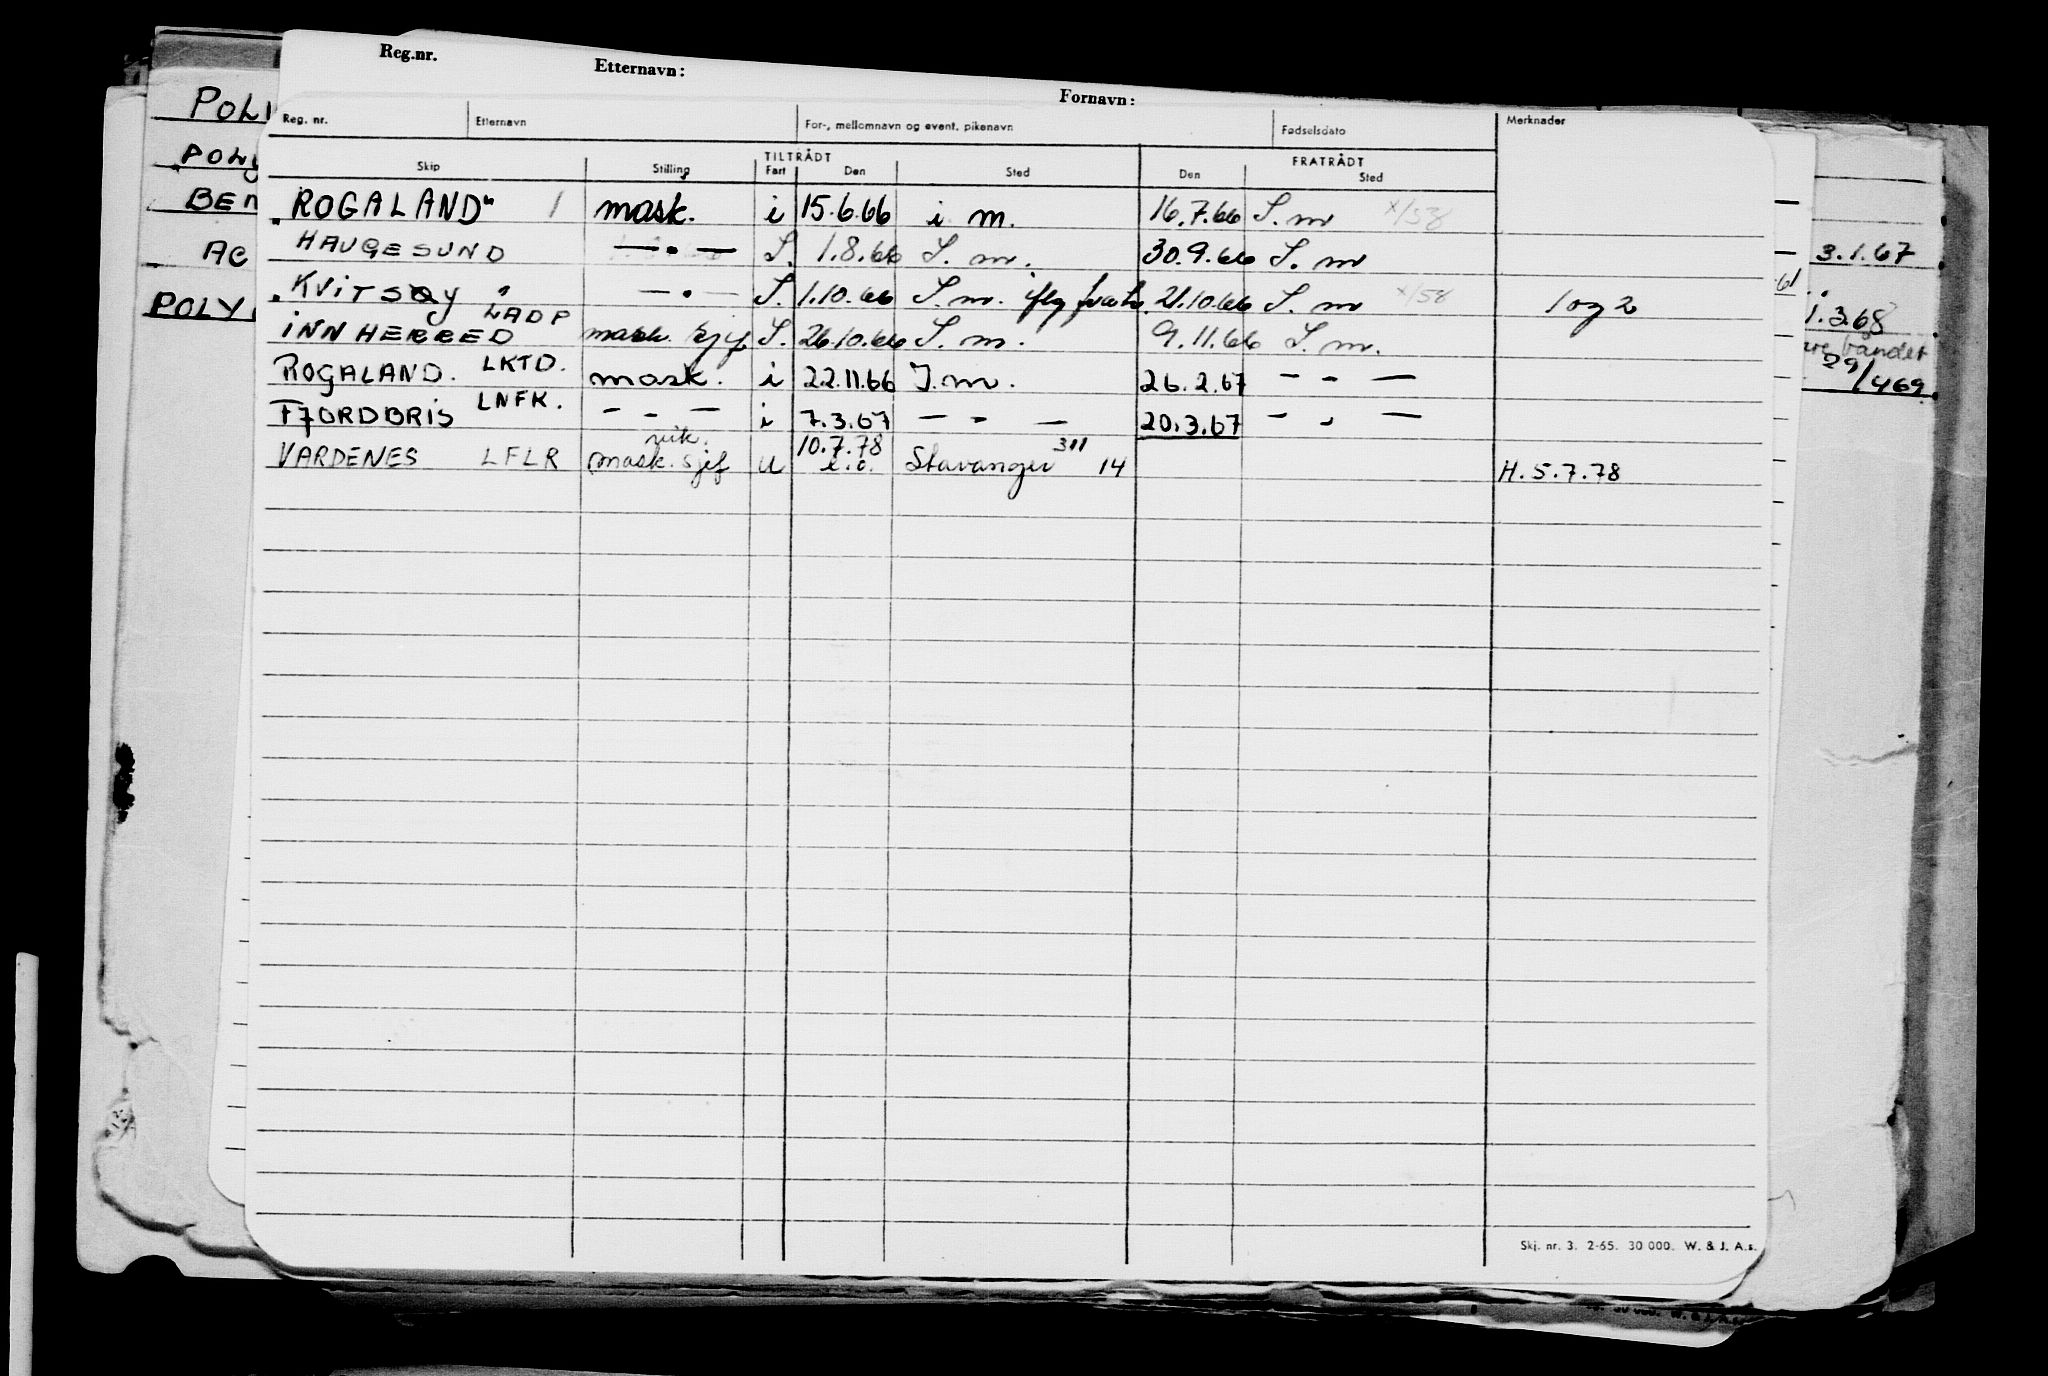 Reg.nr. Etternavn: Fornavn:
Reg. nr. Etternavn For-, mellomnavn og event. pikenavn Fødselsdato Merknader
TILTRÅDT FRATRÅDT
Skip Stilling Fart Den Sted Den Sted
"ROGALAND" 1 mask. i 15.6.66 i m. 16.7.66 S. m x/58
HAUGESUND — • — S. 1.8.66 S. m. 30.9.66 S. m
"KVITSØY" — • — S. 1.10.66 S. m. iflg fratr. 21.10.66 S. m x/58 1 og 2
INNHERRED LADP mask. sjef S. 26.10.66 S. m. 9.11.66 S. m.
ROGALAND. LKTD. mask. i 22.11.66 I. m. 26.2.67 — - —
FJORDBRIS LNFK. — - — i 7.3.67 — - — 20.3.67 — - —
VARDENES LFLR vik. mask. sjef u 10.7.78 e.o. Stavanger 311 14 H. 5.7.78
Skj. nr. 3. 2-65. 30 000. W. & J. A.s.
POLY
BEN
AC
POLY
3.1.67
1.3.68
29/469